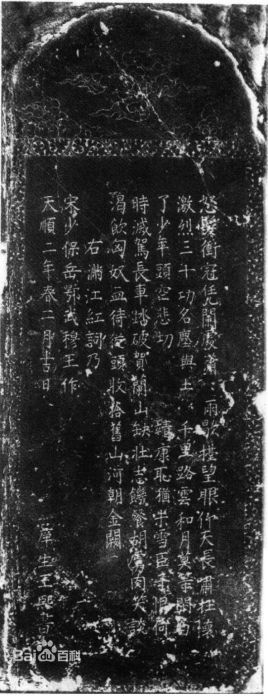 怒髮衝冠凭闌處瀟雨歇擡望眼仰天長嘯壯懷
激烈三十功名塵與土千里路雲和月莫等閒白
了少年頭空悲切康耻猶未雪臣子何
時滅駕長車踏破賀蘭山缺壯志饑餐胡虜肉笑談
渴飲匈奴血待從頭收拾舊山河朝金闕
右滿江紅詞乃
宋少保岳鄂武穆王作
天順二年春二月吉日 庠生王熙書
Baidu百科